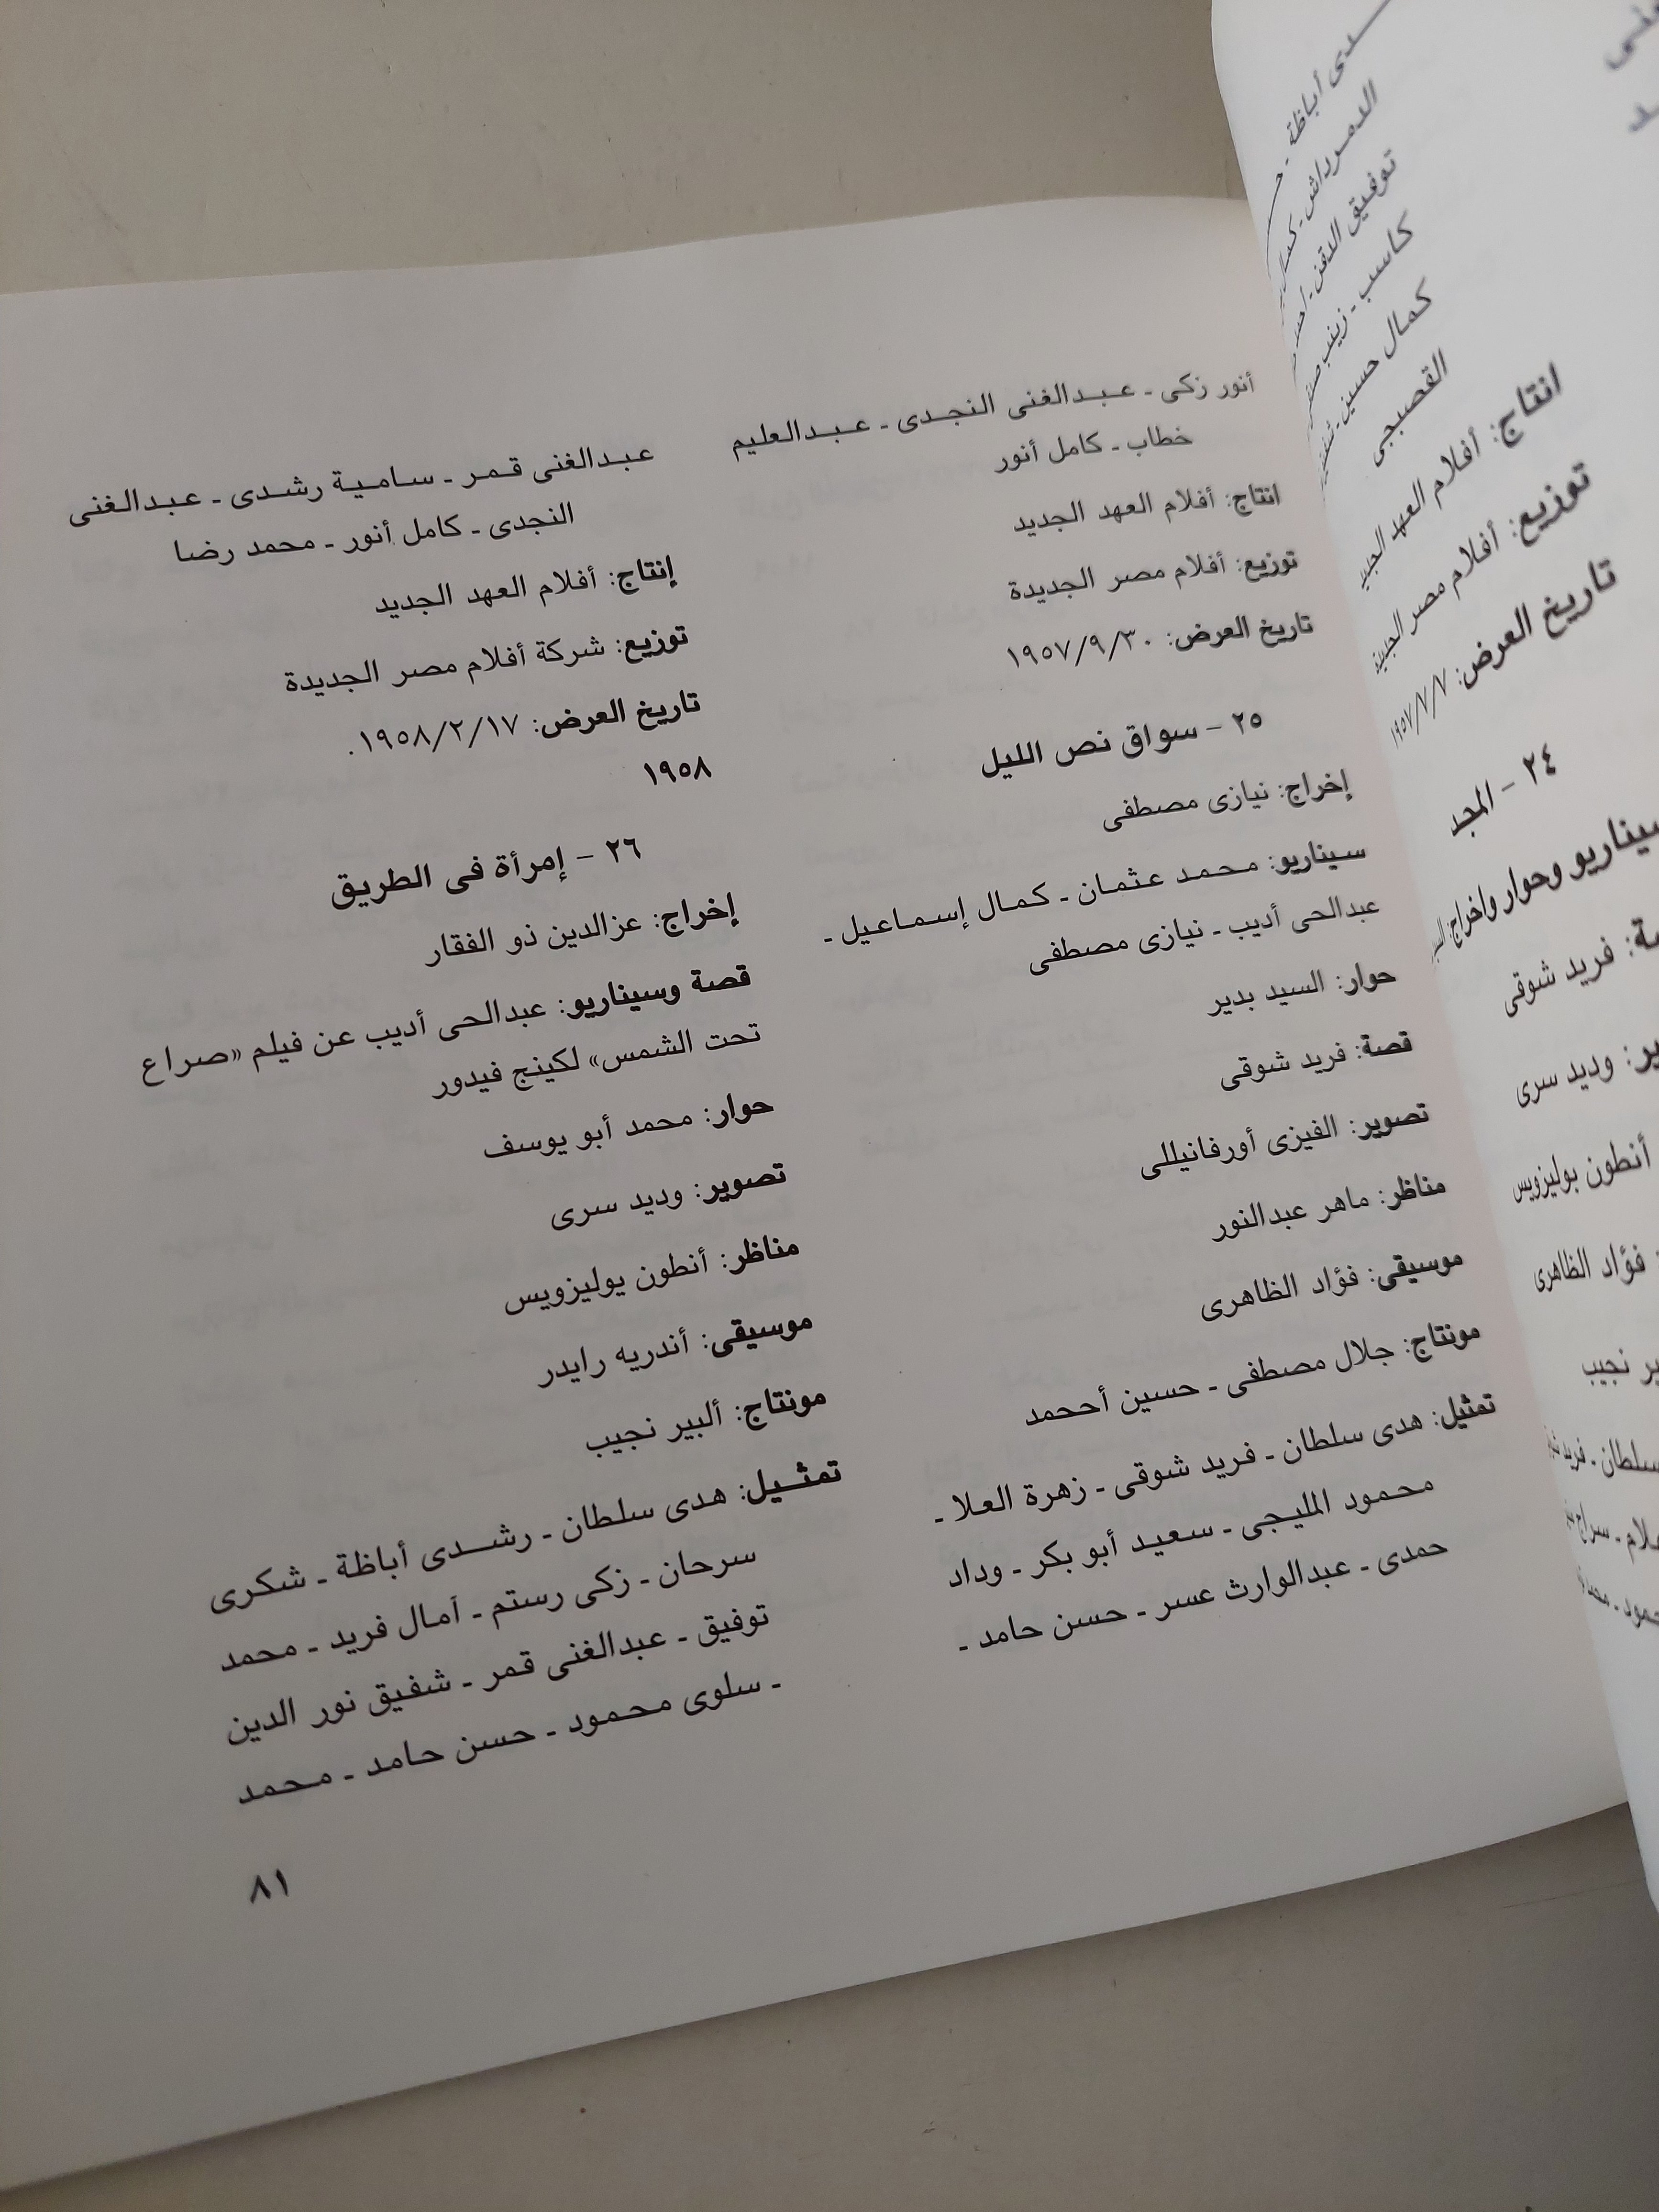 أنور زكى ـ عبدالغنى النجدى ـ عبدالعليم
خطاب ـ كامل أنور
انتاج: أفلام العهد الجديد
توزيع: أفلام مصر الجديدة
تاريخ العرض: ١٩٥٧/٩/٣٠
٢٥ - سواق نص الليل
إخراج: نيازى مصطفى
سيناريو: محمد عثمان ـ كمال إسماعيل ـ
عبدالحى أديب ـ نيازى مصطفى
حوار: السيد بدير
قصة: فريد شوقى
تصوير: الفيزى أورفانيللى
مناظر: ماهر عبدالنور
موسيقى: فؤاد الظاهرى
مونتاج: جلال مصطفى ـ حسين أححمد
تمثيل: هدى سلطان ـ فريد شوقى ـ زهرة العلا ـ
محمود المليجى ـ سعيد أبو بكر ـ وداد
حمدى ـ عبدالوارث عسر ـ حسن حامد ـ
عبدالغنى قمر ـ سامية رشدى ـ عبدالغنى
النجدى ـ كامل أنور ـ محمد رضا
إنتاج: أفلام العهد الجديد
توزيع: شركة أفلام مصر الجديدة
تاريخ العرض: ١٩٥٨/٢/١٧.
١٩٥٨
٢٦ - إمرأة فى الطريق
إخراج: عزالدين ذو الفقار
قصة وسيناريو: عبدالحى أديب عن فيلم «صراع
تحت الشمس» لكينج فيدور
حوار: محمد أبو يوسف
تصوير: وديد سرى
مناظر: أنطون يوليزويس
موسيقى: أندريه رايدر
مونتاج: ألبير نجيب
تمثيل: هدى سلطان ـ رشدى أباظة ـ شكرى
سرحان ـ زكى رستم ـ آمال فريد ـ محمد
توفيق ـ عبدالغنى قمر ـ شفيق نور الدين
ـ سلوى محمود ـ حسن حامد ـ محمد
٨١
أباظة ـ
الدمرداش ـ
توفيق الدقن ـ
كاسب ـ زينب
كمال حسين ـ
القصبجى
انتاج: أفلام العهد الجديد
توزيع: أفلام مصر الجديدة
تاريخ العرض: ١٩٥٧/٧/٧
٢٤ - المجد
وحوار واخراج:
فريد شوقى
وديد سرى
أنطون بوليزويس
فؤاد الظاهرى
نجيب
سلطان ـ فريد